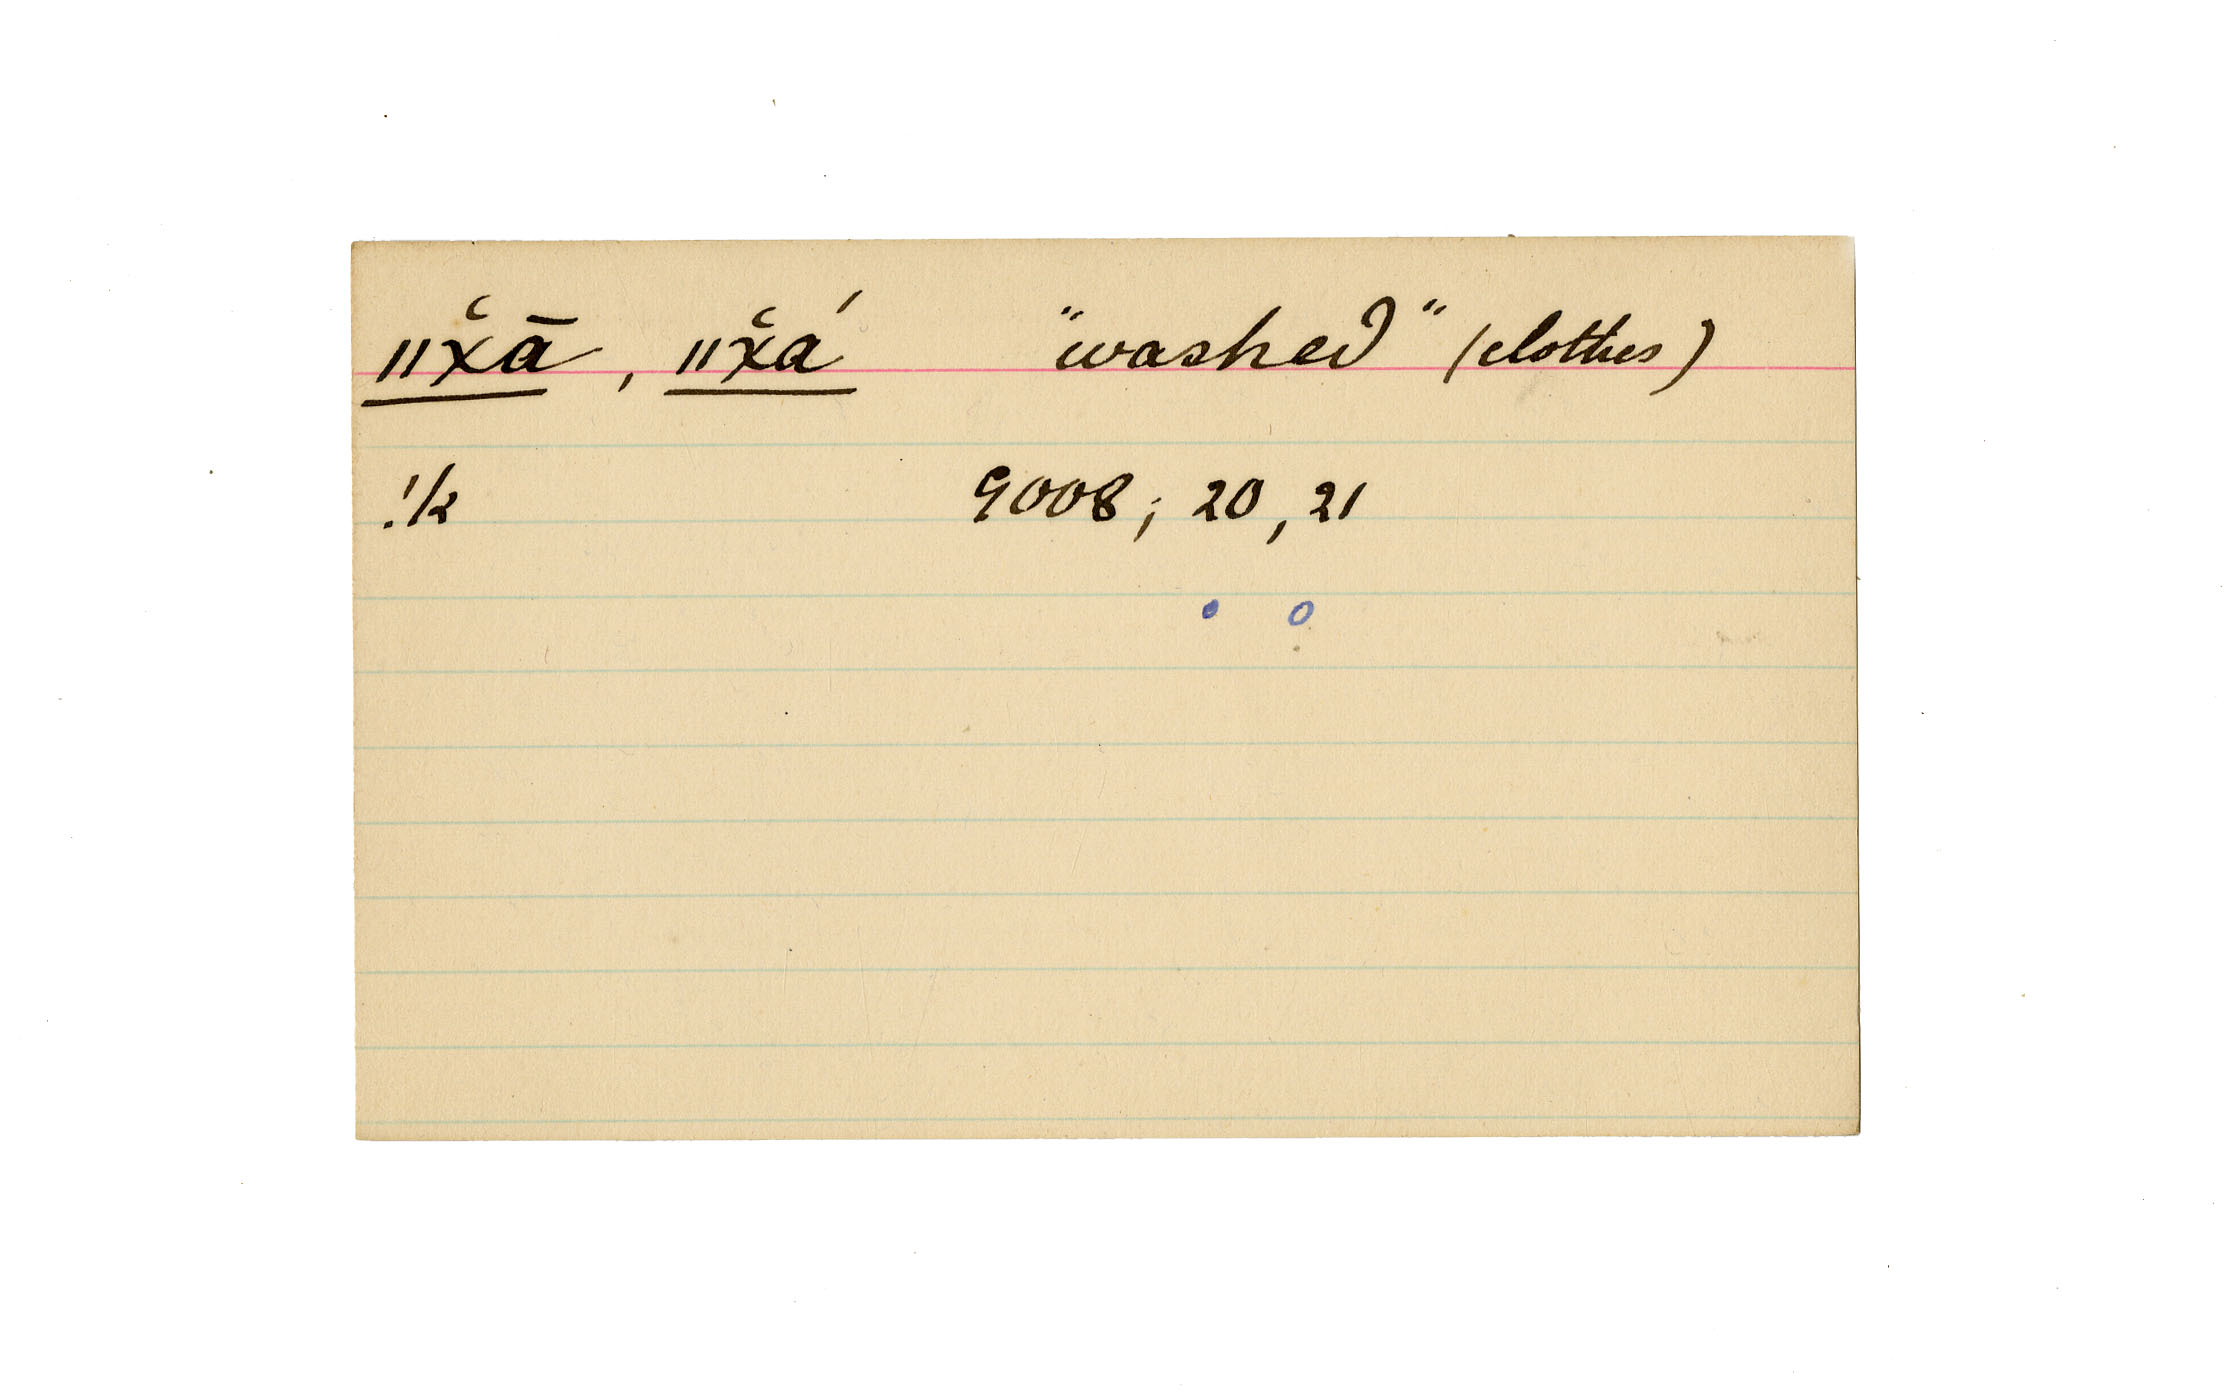 ǁx̆ā, ǁx̆á "washed" (clothes)
!k 9008; 20, 21